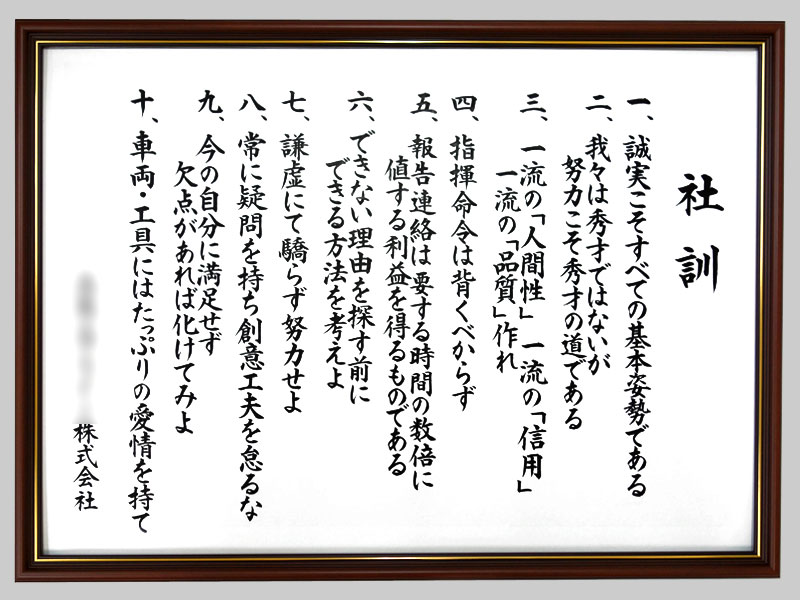 社訓
一、誠実こそすべての基本姿勢である
二、我々は秀才ではないが
努力こそ秀才の道である
三、一流の「人間性」一流の「信用」
一流の「品質」作れ
四、指揮命令は背くべからず
五、報告連絡は要する時間の数倍に
値する利益を得るものである
六、できない理由を探す前に
できる方法を考えよ
七、謙虚にて驕らず努力せよ
八、常に疑問を持ち創意工夫を怠るな
九、今の自分に満足せず
欠点があれば化けてみよ
十、車両・工具にはたっぷりの愛情を持て
株式会社